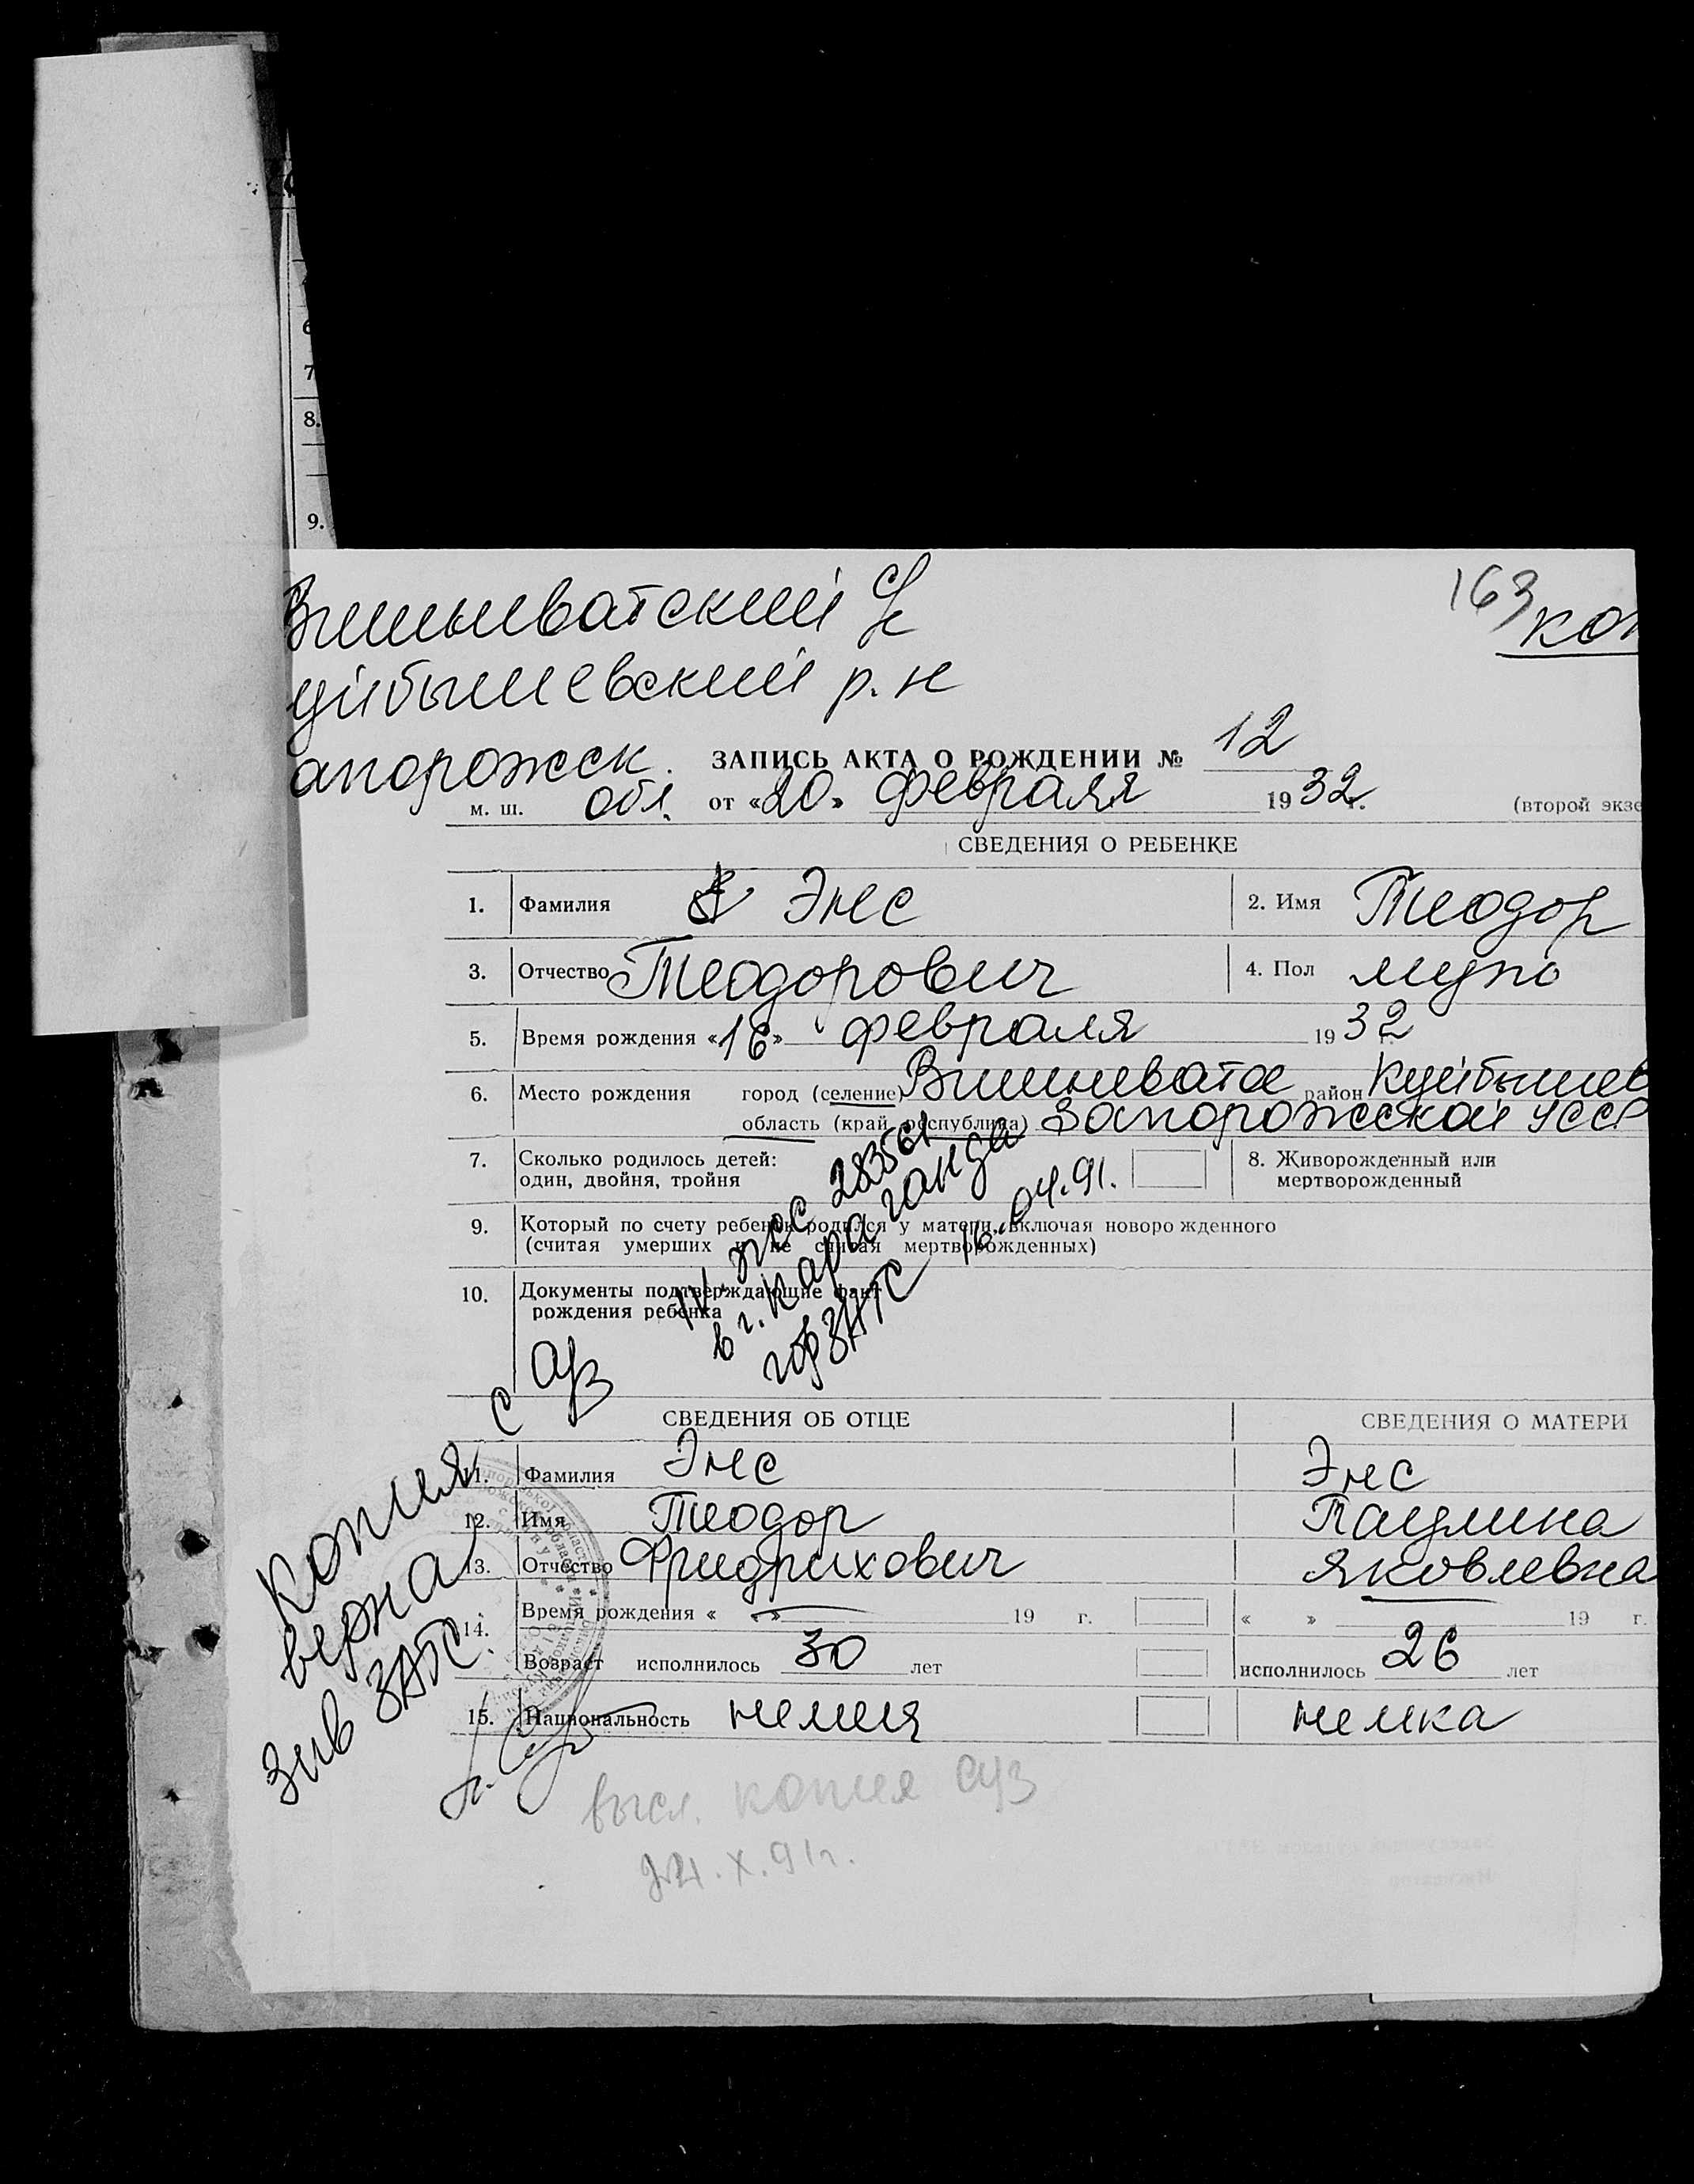 163
коп
Вишневатский с/с
уйбышевский р.н
апорожск. обл.
ЗАПИСЬ АКТА О РОЖДЕНИИ № 12
м. ш. от «20» февраля 1932 г. (второй экзе
СВЕДЕНИЯ О РЕБЕНКЕ
1. Фамилия Энс 2. Имя Теодор
3. Отчество Теодорович 4. Пол муж
5. Время рождения «16» февраля 1932
6. Место рождения город (селение) Вишневата район Куйбышев
область (край, республика) Запорожской УССР
7. Сколько родилось детей: один, двойня, тройня 8. Живорожденный или мертворожденный
9. Который по счету ребенок родился у матери, включая новорожденного
(считая умерших и не считая мертворожденных)
10. Документы подтверждающие факт
рождения ребенка
283561
в г. Караганда
горЗАГС 16.04.91.
Копия с а/з
верна
Зав ЗАГС.
СВЕДЕНИЯ ОБ ОТЦЕ СВЕДЕНИЯ О МАТЕРИ
11. Фамилия Энс Энс
12. Имя Теодор Паулина
13. Отчество Фридрихович Яковлевна
14. Время рождения « » 19 г. « » 19 г.
Возраст исполнилось 30 лет исполнилось 26 лет
15. Национальность немец немка
высл. копия а/з
24.X.91г.
6
7
8.
9.